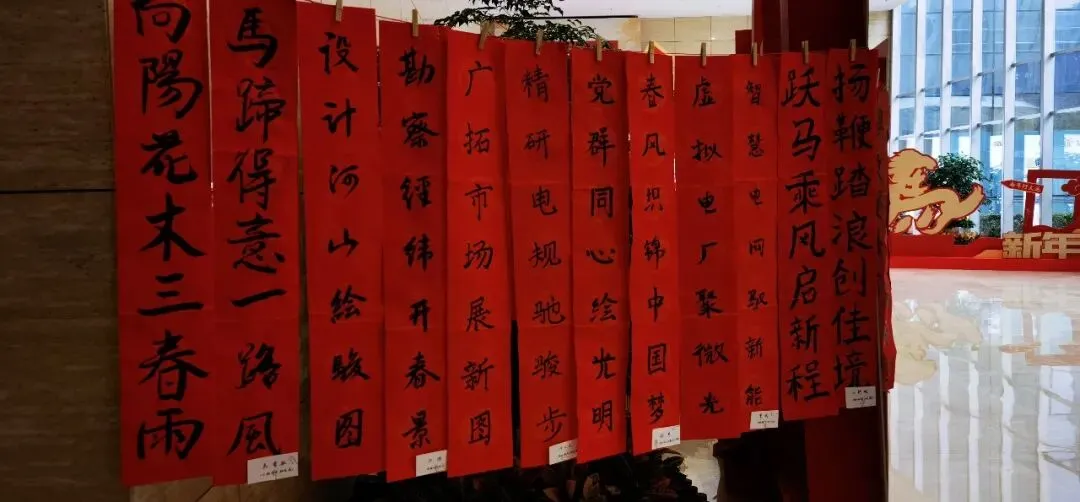 扬鞭踏浪创佳境
跃马乘风启新程
智慧电网驭新能
虚拟电厂聚微光
春风织锦中国梦
党群同心绘光明
精研电规驰骏步
广拓市场展新图
勘察經纬开春景
设计河山绘骏图
馬蹄得意一路風
向陽花木三春雨
新年